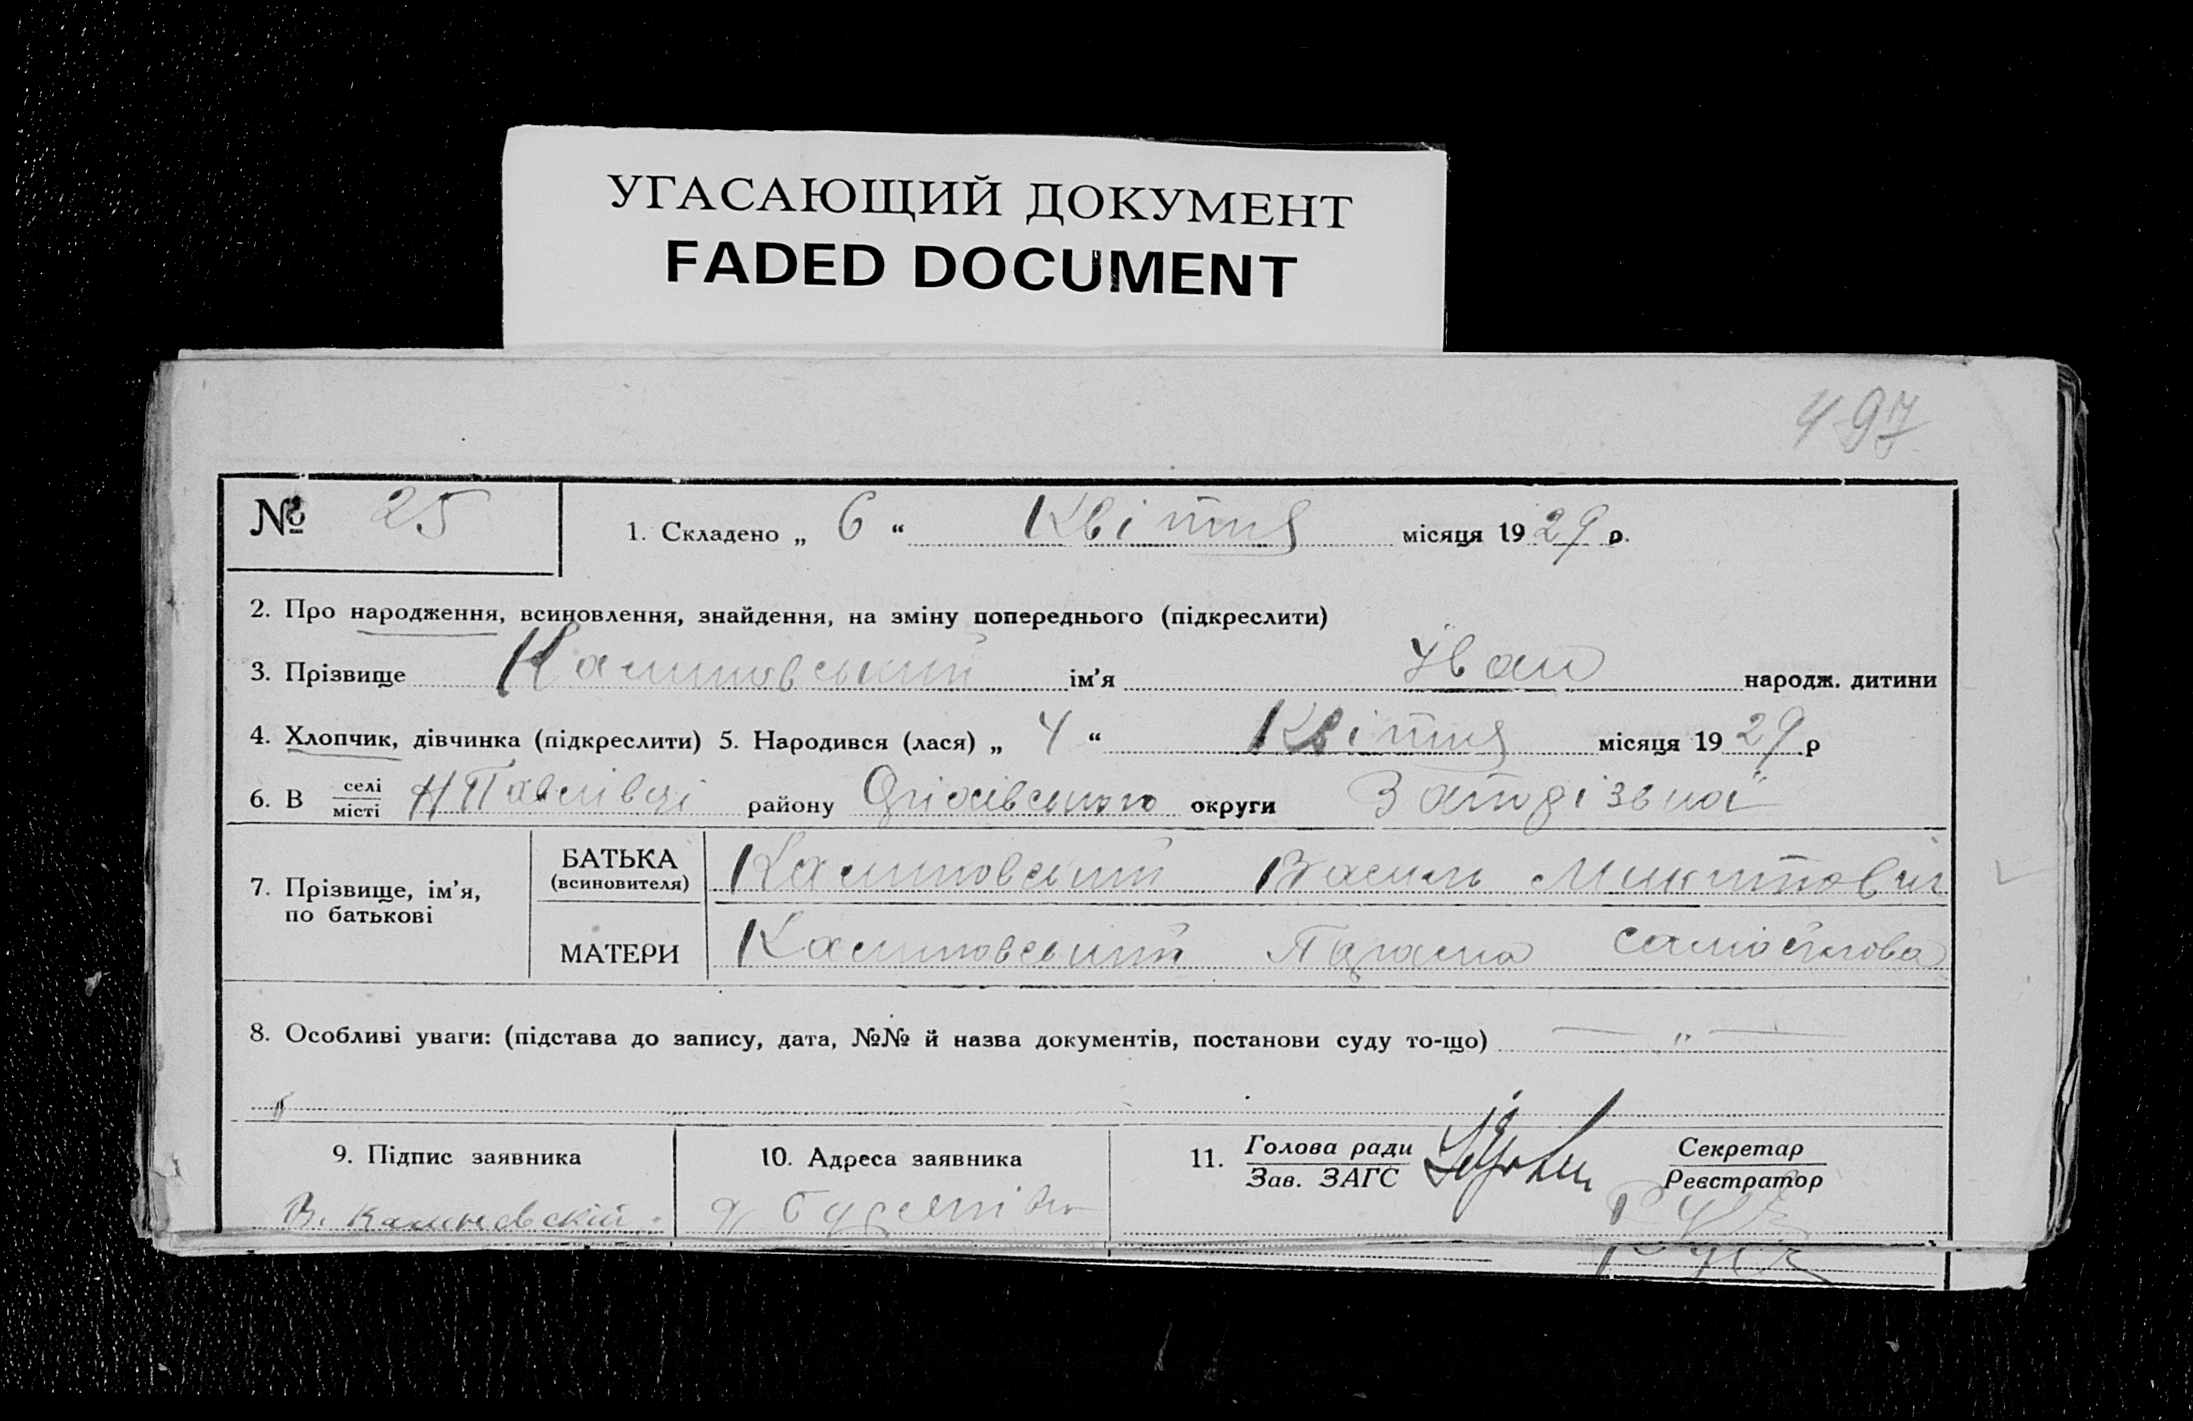 УГАСАЮЩИЙ ДОКУМЕНТ
FADED DOCUMENT
497
№ 25
1. Складено „ 6 “ Квітня місяця 1929 р.
2. Про народження, всиновлення, знайдення, на зміну попереднього (підкреслити)
3. Прізвище Калиновський ім’я Іван народж. дитини
4. Хлопчик, дівчинка (підкреслити) 5. Народився (лася) „ 4 “ Квітня місяця 1929 р
6. В селі місті Н Павлівці району Оріхівського округи Запорізької
7. Прізвище, ім’я, по батькові
БАТЬКА (всиновителя) Калиновський Василь Микитович
МАТЕРИ Калиновський
8. Особливі уваги: (підстава до запису, дата, №№ й назва документів, постанови суду то-що) — „ —
9. Підпис заявника
10. Адреса заявника
11. Голова ради Зав. ЗАГС
Секретар Реєстратор
В. Калиновскій